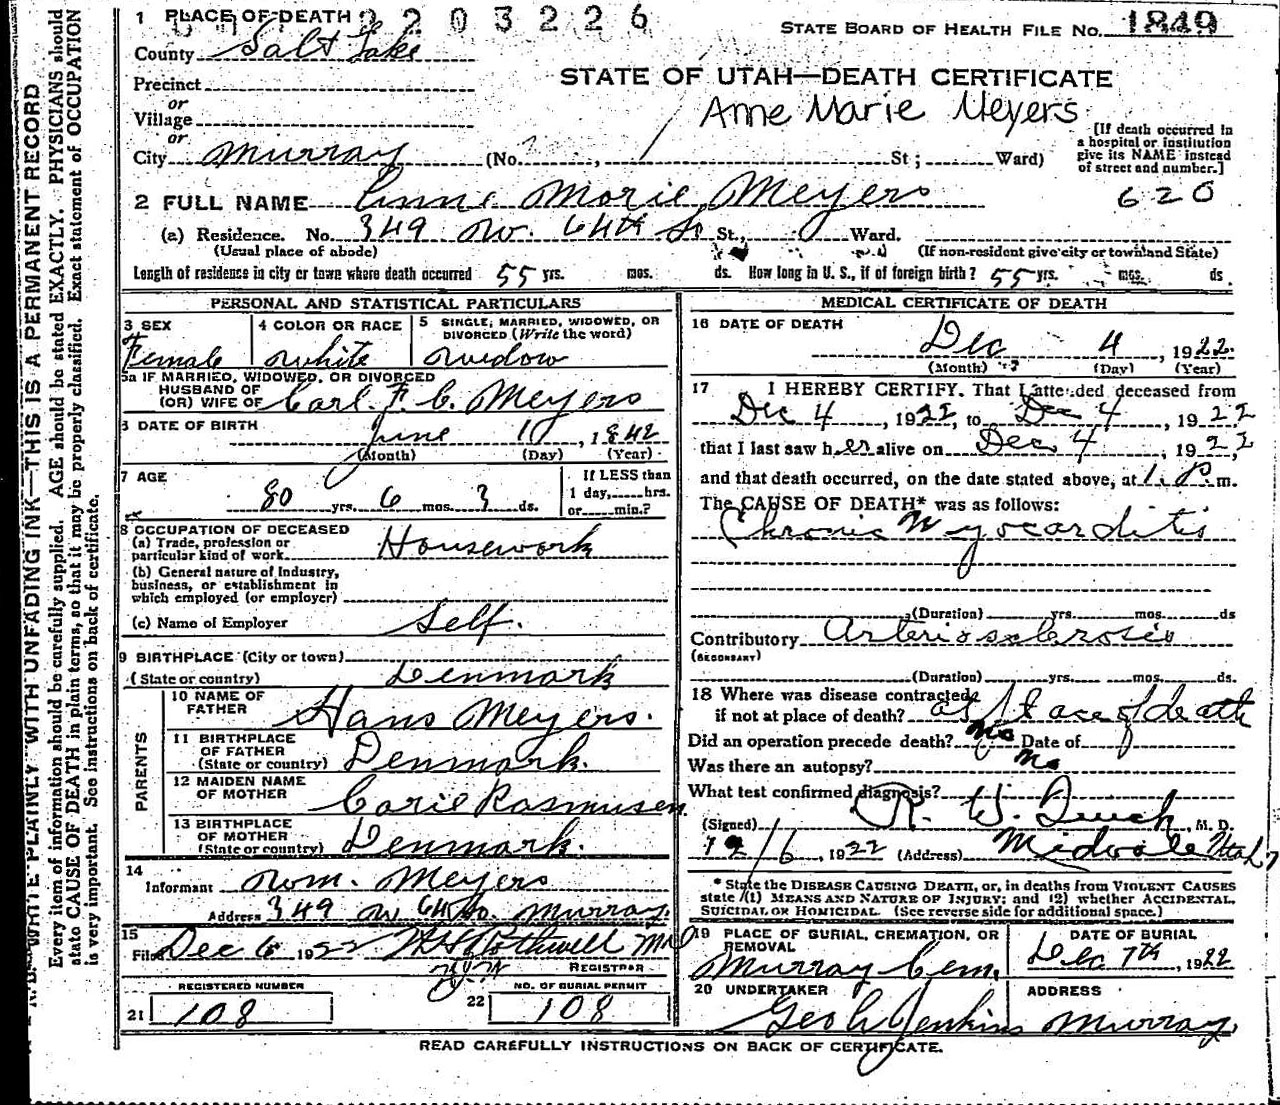 2203226
1 PLACE OF DEATH
STATE BOARD OF HEALTH FILE NO. 1849
County Salt Lake
STATE OF UTAH—DEATH CERTIFICATE
Precinct
or
Anne Marie Meyers
Village
or
City Murray (No. , St; Ward)
[If death occurred in a hospital or institution give its NAME instead of street and number.]
620
2 FULL NAME Anne Marie Meyers
(a) Residence. No. 349 W. 64th So St., Ward.
(Usual place of abode) (If non-resident give city or town and State)
Length of residence in city or town where death occurred 55 yrs. mos. ds. How long in U. S., if of foreign birth? 55 yrs. mos. ds
PERSONAL AND STATISTICAL PARTICULARS
3 SEX
Female
4 COLOR OR RACE
White
5 SINGLE, MARRIED, WIDOWED, OR DIVORCED (Write the word)
Widow
5a IF MARRIED, WIDOWED, OR DIVORCED
HUSBAND OF
(OR) WIFE OF Carl. F. C. Meyers
6 DATE OF BIRTH June 1, 1842
(Month) (Day) (Year)
7 AGE
80 yrs. 6 mos. 3 ds.
If LESS than
1 day, hrs.
or min.?
8 OCCUPATION OF DECEASED
(a) Trade, profession or
particular kind of work Housework
(b) General nature of Industry,
business, or establishment in
which employed (or employer)
(c) Name of Employer Self.
9 BIRTHPLACE (City or town)
(State or country) Denmark
PARENTS
10 NAME OF
FATHER Hans Meyers.
11 BIRTHPLACE
OF FATHER
(State or country) Denmark.
12 MAIDEN NAME
OF MOTHER Carie Rasmusen
13 BIRTHPLACE
OF MOTHER
(State or country) Denmark.
14
Informant Wm. Meyers
Address 349 W 64 So. Murray.
15
Filed Dec 6 1922 Rothwell MD
REGISTRAR
REGISTERED NUMBER
21 108
NO. OF BURIAL PERMIT
22 108
MEDICAL CERTIFICATE OF DEATH
16 DATE OF DEATH
Dec 4, 1922.
(Month) (Day) (Year)
17 I HEREBY CERTIFY. That I attended deceased from
Dec 4, 1922, to Dec 4, 1922
that I last saw her alive on Dec 4, 1922,
and that death occurred, on the date stated above, at 1. P. m.
The CAUSE OF DEATH* was as follows:
Chronic Myocarditis
(Duration) yrs. mos. ds
Contributory Arteriosclerosis
(SECONDARY)
(Duration) yrs. mos. ds.
18 Where was disease contracted
if not at place of death? at place of death
Did an operation precede death? no Date of
Was there an autopsy? no
What test confirmed diagnosis?
(Signed) R. W. , M. D.
12/6, 1922 (Address) Midvale Utah
* State the DISEASE CAUSING DEATH, or, in deaths from VIOLENT CAUSES
state (1) MEANS AND NATURE OF INJURY; and (2) whether ACCIDENTAL,
SUICIDAL OR HOMICIDAL. (See reverse side for additional space.)
19 PLACE OF BURIAL, CREMATION, OR
REMOVAL
Murray Cem.
DATE OF BURIAL
Dec 7th, 1922
20 UNDERTAKER
Geo Jenkins
ADDRESS
Murray.
READ CAREFULLY INSTRUCTIONS ON BACK OF CERTIFICATE.
WRITE PLAINLY WITH UNFADING INK—THIS IS A PERMANENT RECORD
Every item of information should be carefully supplied. AGE should be stated EXACTLY. PHYSICIANS should
state CAUSE OF DEATH in plain terms, so that it may be properly classified. Exact statement of OCCUPATION
is very important. See instructions on back of certificate.